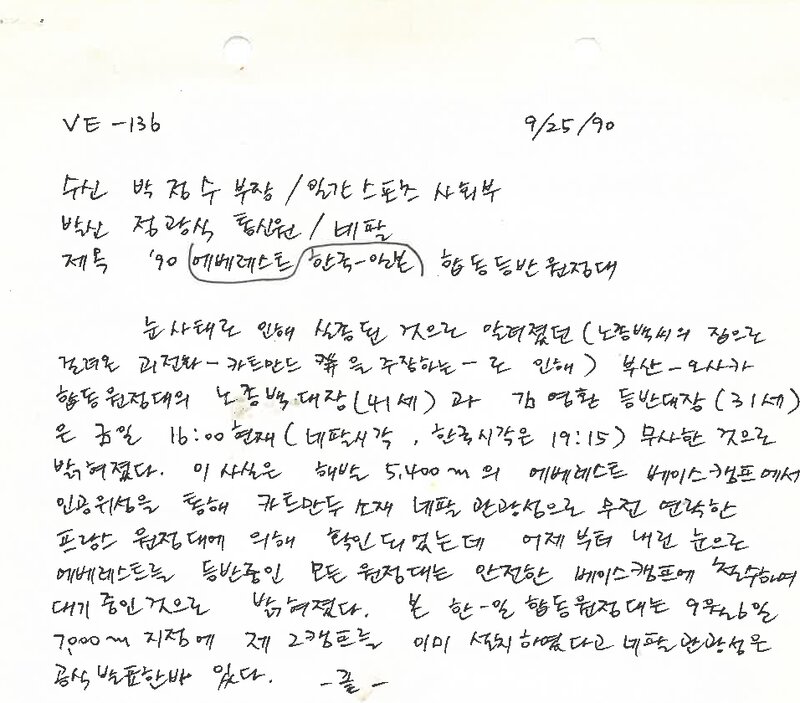 VE -136 9/25/90
수신 박정수 부장 / 일간스포츠 사회부
발신 정광식 통신원 / 네팔
제목 '90 에베레스트 한국-일본 합동등반원정대
눈사태로 인해 실종된 것으로 알려졌던 (노종백씨의 집으로
걸려온 괴전화-카트만드 을 주장하는-로 인해) 부산-오사카
합동원정대의 노종백대장(41세)과 김영환 등반대장(31세)
은 금일 16:00현재(네팔시각, 한국시각은 19:15) 무사한 것으로
밝혀졌다. 이 사실은 해발 5,400m의 에베레스트 베이스캠프에서
인공위성을 통해 카트만두 소재 네팔 관광성으로 무전 연락한
프랑스 원정대에 의해 확인되었는데 어제부터 내린 눈으로
에베레스트를 등반중인 모든 원정대는 안전한 베이스캠프에 철수하여
대기중인것으로 밝혀졌다. 본 한-일 합동원정대는 9월16일
7,000m 지점에 제 2캠프를 이미 설치하였다고 네팔관광성은
공식발표한바 있다. -끝-